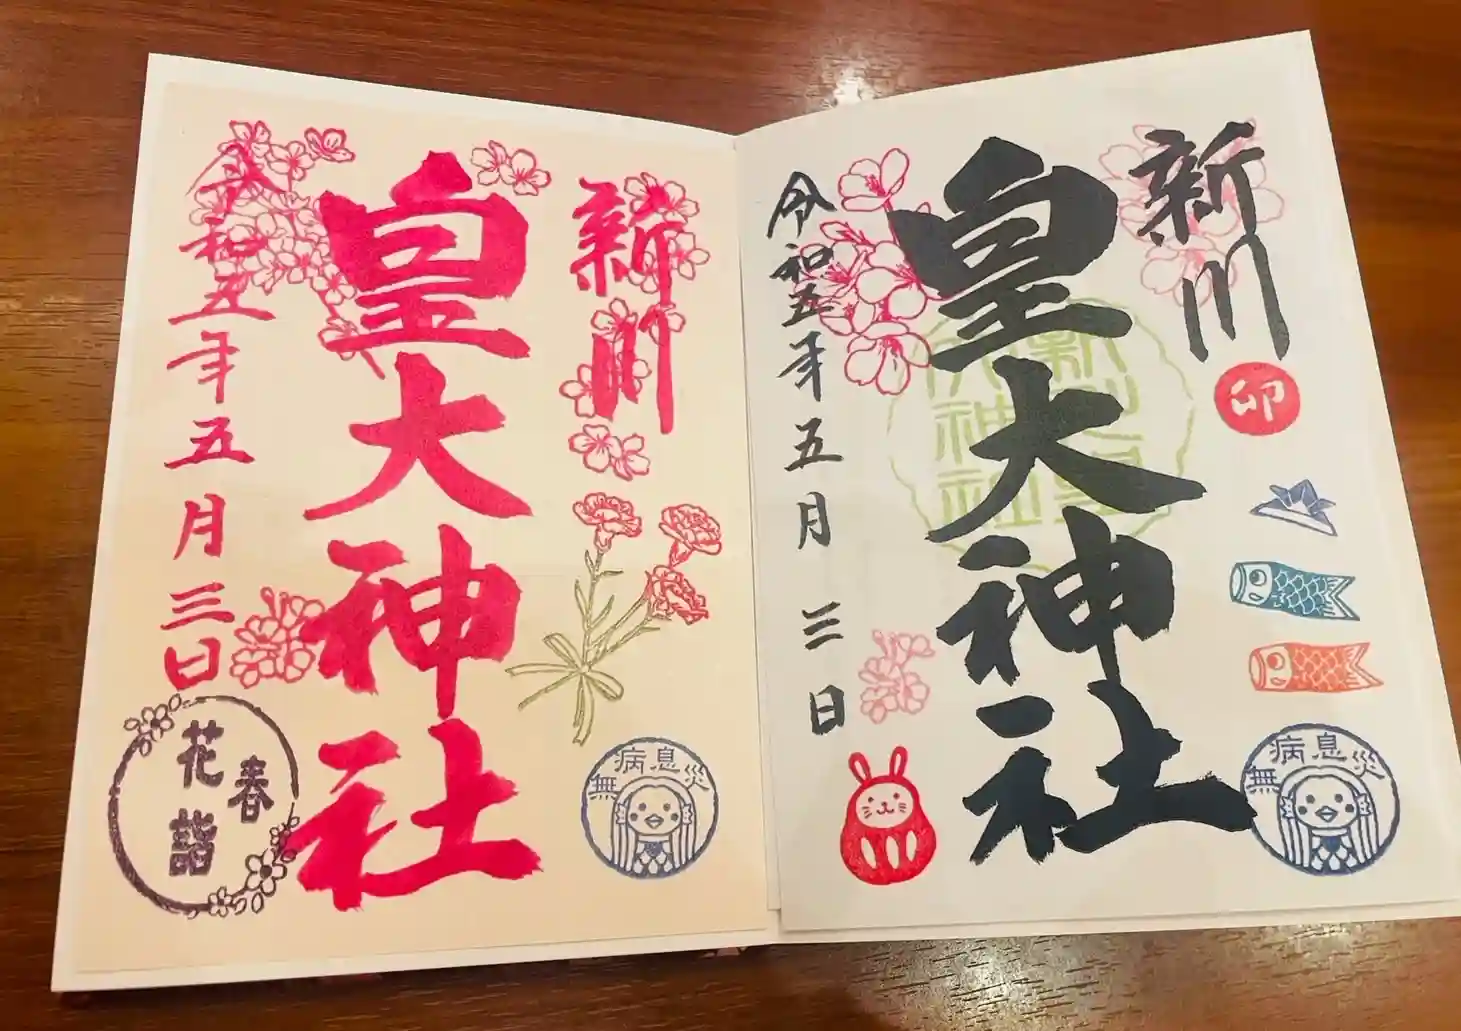 新川
皇大神社
令和五年五月三日
無病息災
春
花詣
新川
卯
皇大神社
令和五年五月三日
無病息災